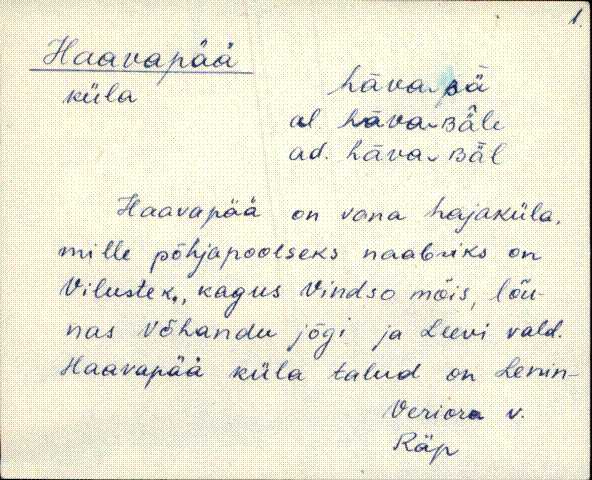 1.
Haavapää
küla
hāva-pǟ
al. hāva-ʙǟle
ad. hāva-ʙǟl
Haavapää on vana hajaküla,
mille põhjapoolseks naabriks on
Viluste k., kagus Vindso mõis, lõu-
nas Võhandu jõgi ja Leevi vald.
Haavapää küla talud on Lenin-
Veriora v.
Räp